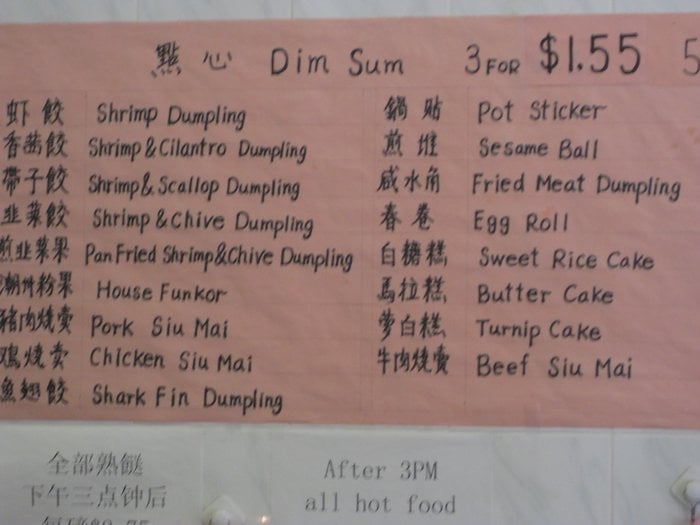 點心 Dim Sum 3 FOR $1.55 5
虾餃 Shrimp Dumpling
香茜餃 Shrimp & Cilantro Dumpling
帶子餃 Shrimp & Scallop Dumpling
韭菜餃 Shrimp & Chive Dumpling
煎韭菜果 Pan Fried Shrimp & Chive Dumpling
潮州粉果 House Funkor
豬肉燒賣 Pork Siu Mai
鳮燒賣 Chicken Siu Mai
魚翅餃 Shark Fin Dumpling
鍋貼 Pot Sticker
煎堆 Sesame Ball
咸水角 Fried Meat Dumpling
春卷 Egg Roll
白糖糕 Sweet Rice Cake
馬拉糕 Butter Cake
萝白糕 Turnip Cake
牛肉燒賣 Beef Siu Mai
全部熟餸
下午三点钟后
After 3PM
all hot food